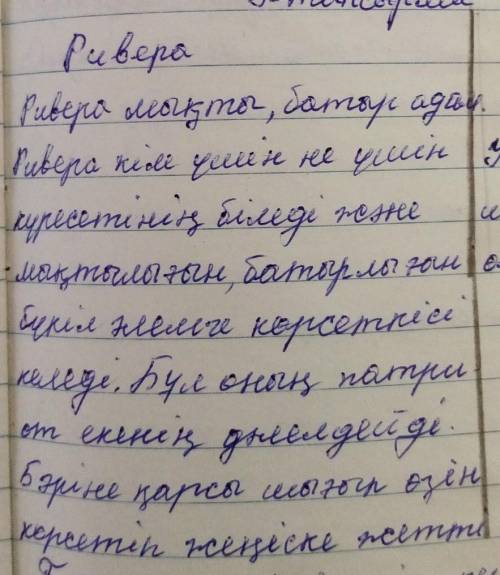 Ривера
Ривера мықты, батыр адам.
Ривера кім үшін не үшін
күресетінің біледі және
мықтылығын, батырлығын
бүкіл әлемге көрсеткісі
келеді. Бұл оның патри
от екенің дәлелдейді.
Бәріне қарсы шығып өзін
көрсетіп жеңіске жетті